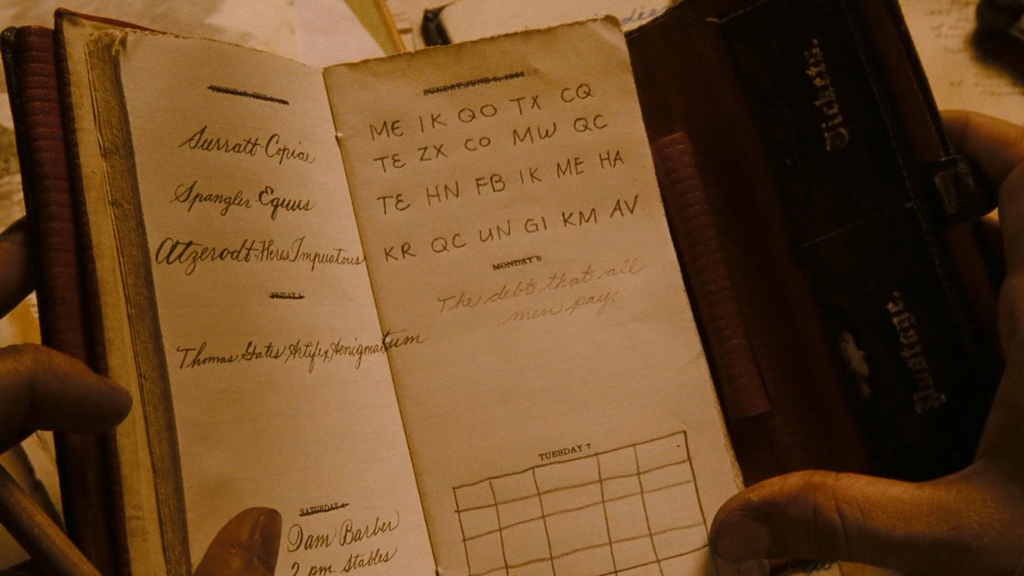 Surratt Copiae
Spangler Equus
Atzerodt-Heres Impuatous
Thomas Gates Artifex Aenigmatum
SATURDAY 4
Dam Barber
2 pm Stables
SUNDAY, JUNE 5, 1864
ME IK QO TX CQ
TE ZX CO MW QC
TE HN FB IK ME HA
KR QC UN GI KM AV
MONDAY 6
The debt that all
men pay.
TUESDAY 7
Tickets.
Postage.